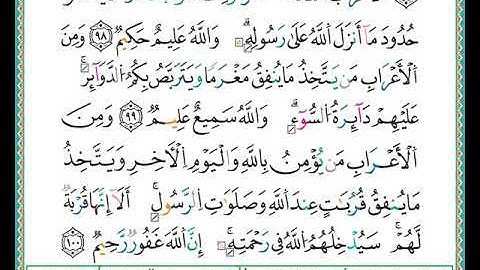 حُدُودَ مَآ أَنزَلَ ٱللَّهُ عَلَىٰ رَسُولِهِۦۗ وَٱللَّهُ عَلِيمٌ حَكِيمٌ ٩٨ وَمِنَ
ٱلْأَعْرَابِ مَن يَتَّخِذُ مَا يُنفِقُ مَغْرَمًا وَيَتَرَبَّصُ بِكُمُ ٱلدَّوَآئِرَۚ
عَلَيْهِمْ دَآئِرَةُ ٱلسُّوٓءِۗ وَٱللَّهُ سَمِيعٌ عَلِيمٌ ٩٩ وَمِنَ
ٱلْأَعْرَابِ مَن يُؤْمِنُ بِٱللَّهِ وَٱلْيَوْمِ ٱلْأَخِرِ وَيَتَّخِذُ
مَا يُنفِقُ قُرُبَٰتٍ عِندَ ٱللَّهِ وَصَلَوَٰتِ ٱلرَّسُولِۚ أَلَآ إِنَّهَا قُرْبَةٌ
لَّهُمْۚ سَيُدْخِلُهُمُ ٱللَّهُ فِى رَحْمَتِهِۦٓۚ إِنَّ ٱللَّهَ غَفُورٌ رَّحِيمٌ ١٠٠